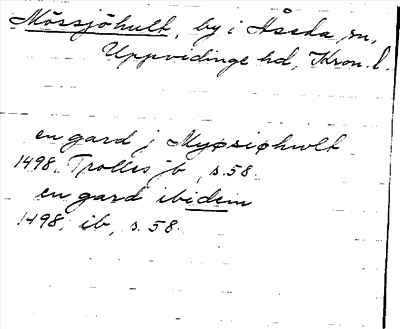 Mössjöhult, by i Åseda sn,
Uppvidinge hd, Kron. l.
en gard j Myøsiøhwlt
1498. Trolles jb, s. 58.
en gard ibidem
1498, ib, s. 58.